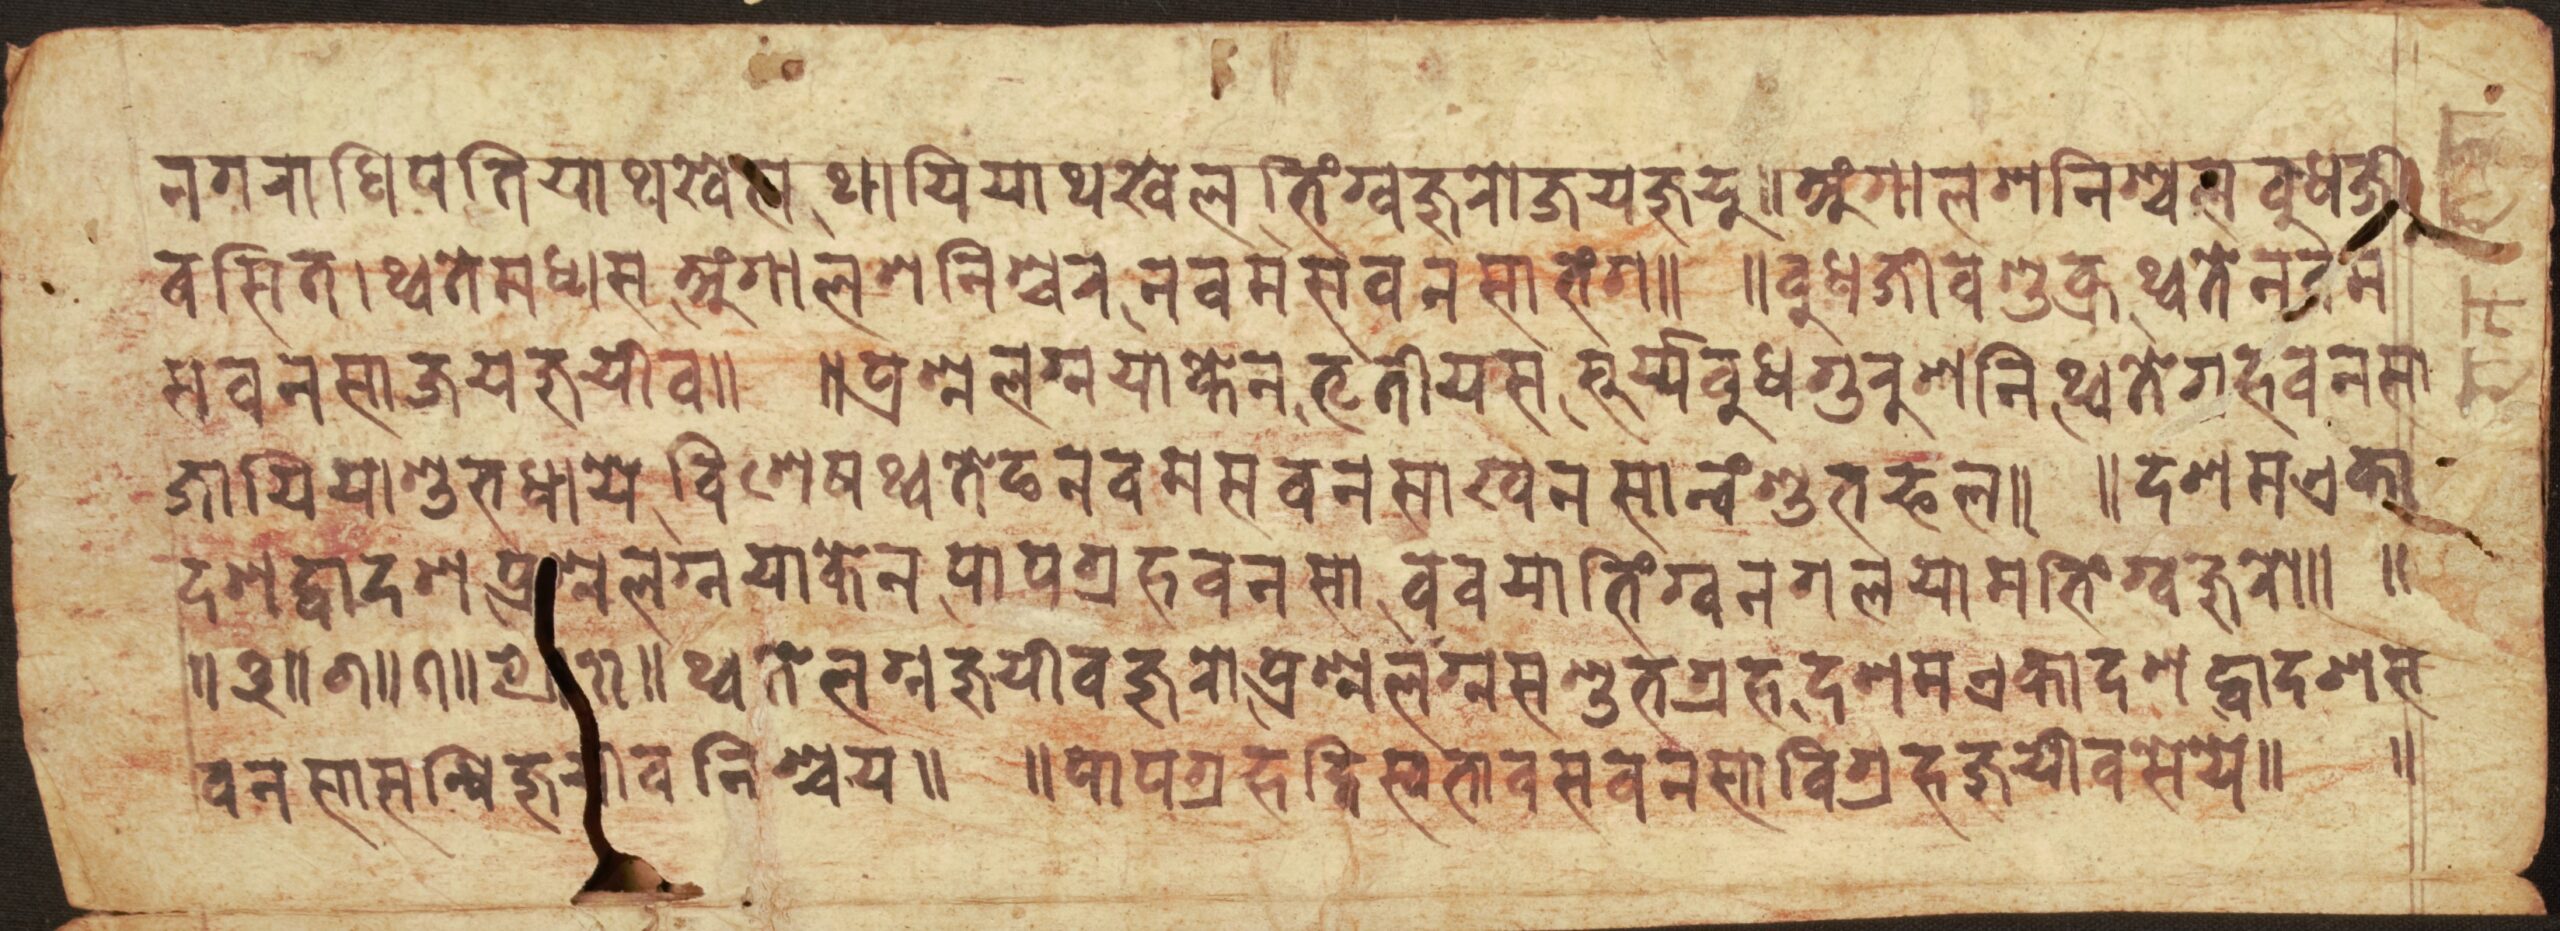 नगराधिपतियाथखेल थायियाथखेल तिंग्वजुरोजयजुयु॥अंगालशनिश्चल बुधजी
वसित।थ्वतेमध्यस अंगालशनिश्चर नवमसवनसाभंग॥ ॥बुधजीवशुक्र थ्वतेनवम
सवनसाजयजुयीव॥ ॥प्रश्नलग्नयाकेन तृतीयस सूर्य्यबुधगुरुशनि थ्वतेगहवनसा
जायियाशुभधाये विशेषथ्वतेछनवमसवनसाखनसानंशुभफल॥ ॥दशमएका
दशद्वादश प्रश्नलग्नयाकेन पापग्रहवनसा ववयातिंग्वनगलयामतिंग्वजुरो॥ ॥
थ्वतेलग्नजुयीवजुरो प्रश्नलग्नसशुभग्रह दशमएकादश द्वादशस
वनसासन्धिजुयीवनिश्चय॥ ॥पापग्रहद्विस्वभावसवनसाविग्रहजुयीवसेये॥ ॥